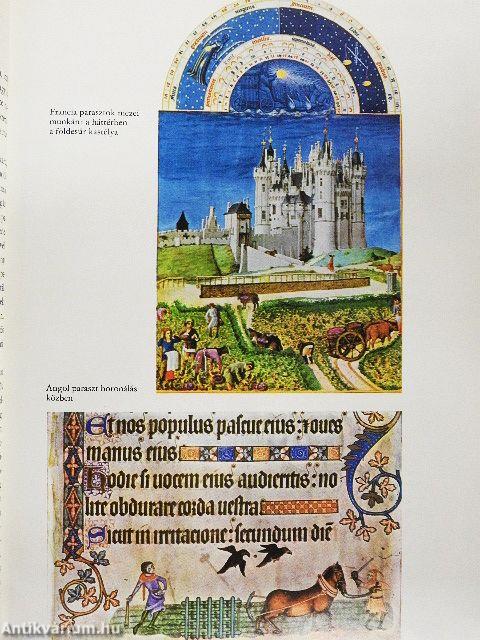 Francia parasztok mezei
munkán: a háttérben
a földesúr kastélya
Angol paraszt boronálás
közben
Et nos populus pascue eius: & oues
manus eius
Hodie si uocem eius audieritis: no
lite obdurare corda uestra
Sicut in irritacione: secundum diem
Antikvárium.hu